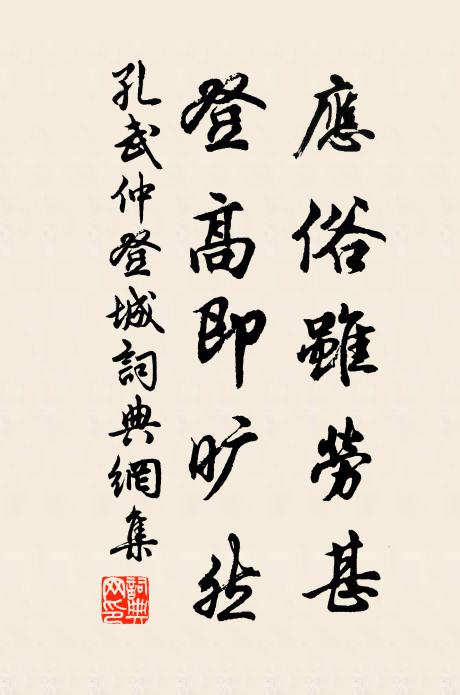 應俗雖勞甚
登高即旷然
孔武仲登城詞典網集
詞典网印